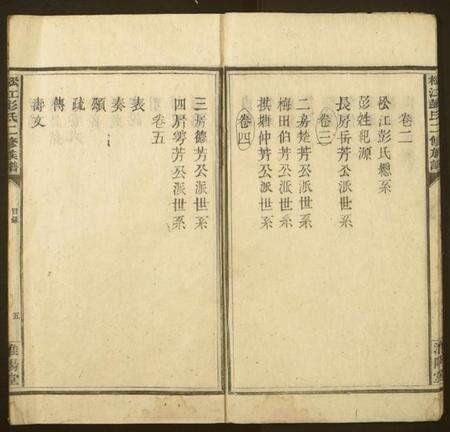 松江彭氏二修族譜
淮陽堂
卷二
松江彭氏總系
彭姓 源
長房岳芳公派世系
卷三
二房楚芳公派世系
梅田伯芳公派世系
棋塘仲芳公派世系
卷四
三房德芳公派世系
四房雩芳公派世系
卷五
表
奏
頌
疏
傳
壽文
松江彭氏二修族譜
目錄
五
淮陽堂